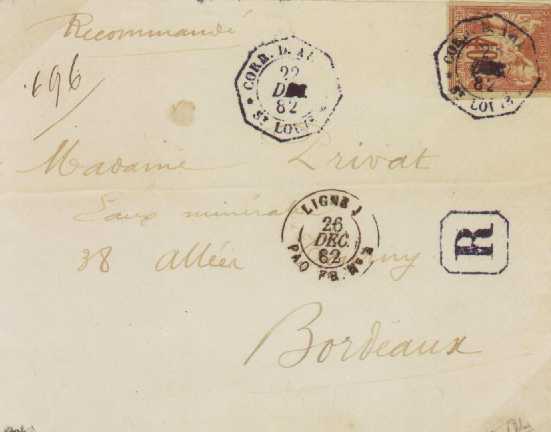 Recommandé
696
CORR. D. AR.
22
DEC
82
ST LOUIS
CORR. D. AR.
82
ST LOUIS
Madame Privat
Eaux minérales
LIGNE J
26
DEC.
82
PAQ. FR. Nº 3
R
38 allées
Bordeaux